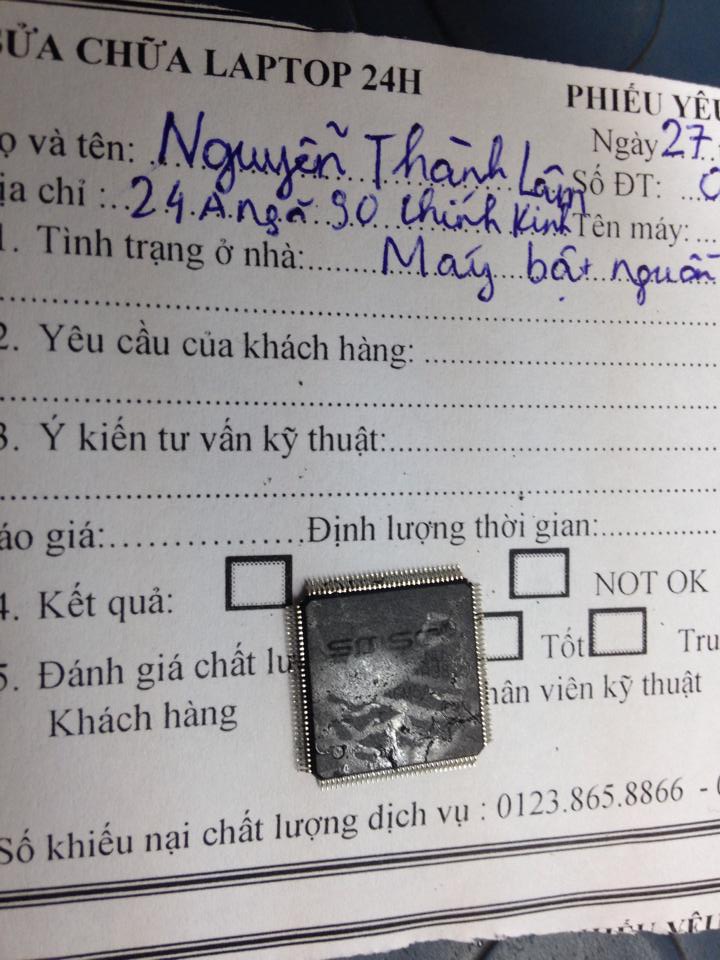 SỬA CHỮA LAPTOP 24H
PHIẾU YÊU
ọ và tên: Nguyễn Thành Lâm
Ngày 27
ịa chỉ : 24A ngõ 90 Chính Kinh
Số ĐT: 0
Tên máy:
1. Tình trạng ở nhà: Máy bật nguồn
2. Yêu cầu của khách hàng:
3. Ý kiến tư vấn kỹ thuật:
áo giá: Định lượng thời gian:
4. Kết quả: NOT OK
5. Đánh giá chất lư Tốt Tru
Khách hàng hân viên kỹ thuật
smsc
Số khiếu nại chất lượng dịch vụ : 0123.865.8866 - 0